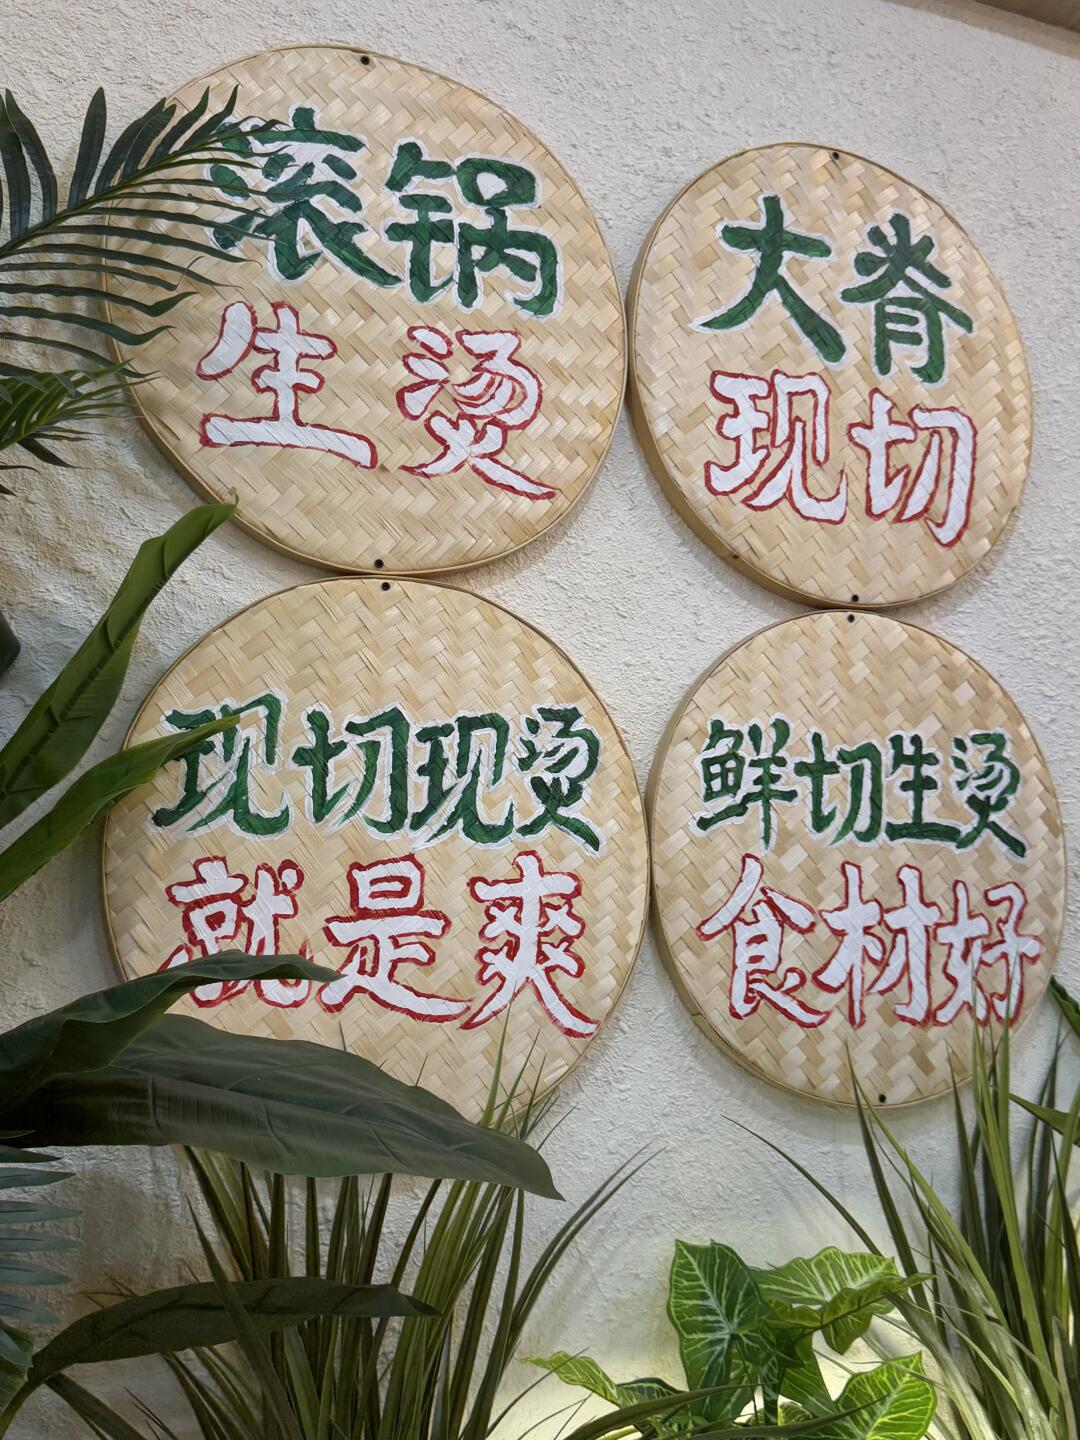 滚锅
生烫
大脊
现切
现切现烫
就是爽
鲜切生烫
食材好